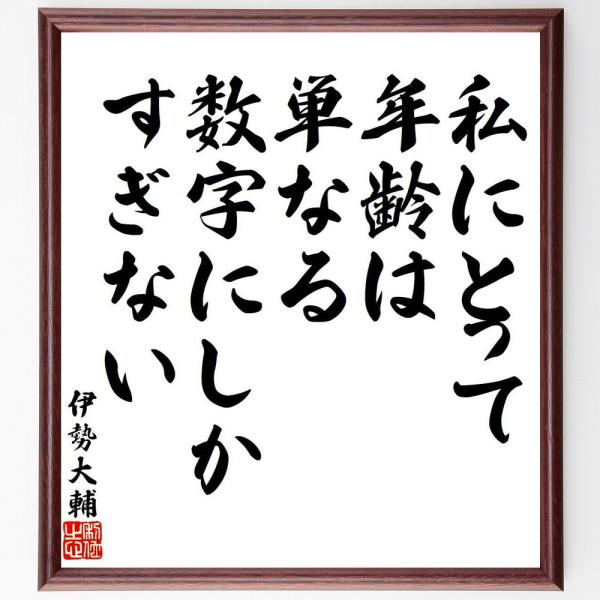 私にとって
年齢は
単なる
数字にしか
すぎない
伊勢大輔